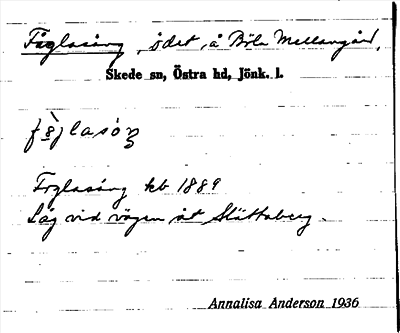 Fåglasång, ödet, å Böla Mellangård,
Skede sn, Östra hd, Jönk. l.
Fåglasång kb 1889
Låg vid vägen åt Slättaberg.
Annalisa Anderson 1936